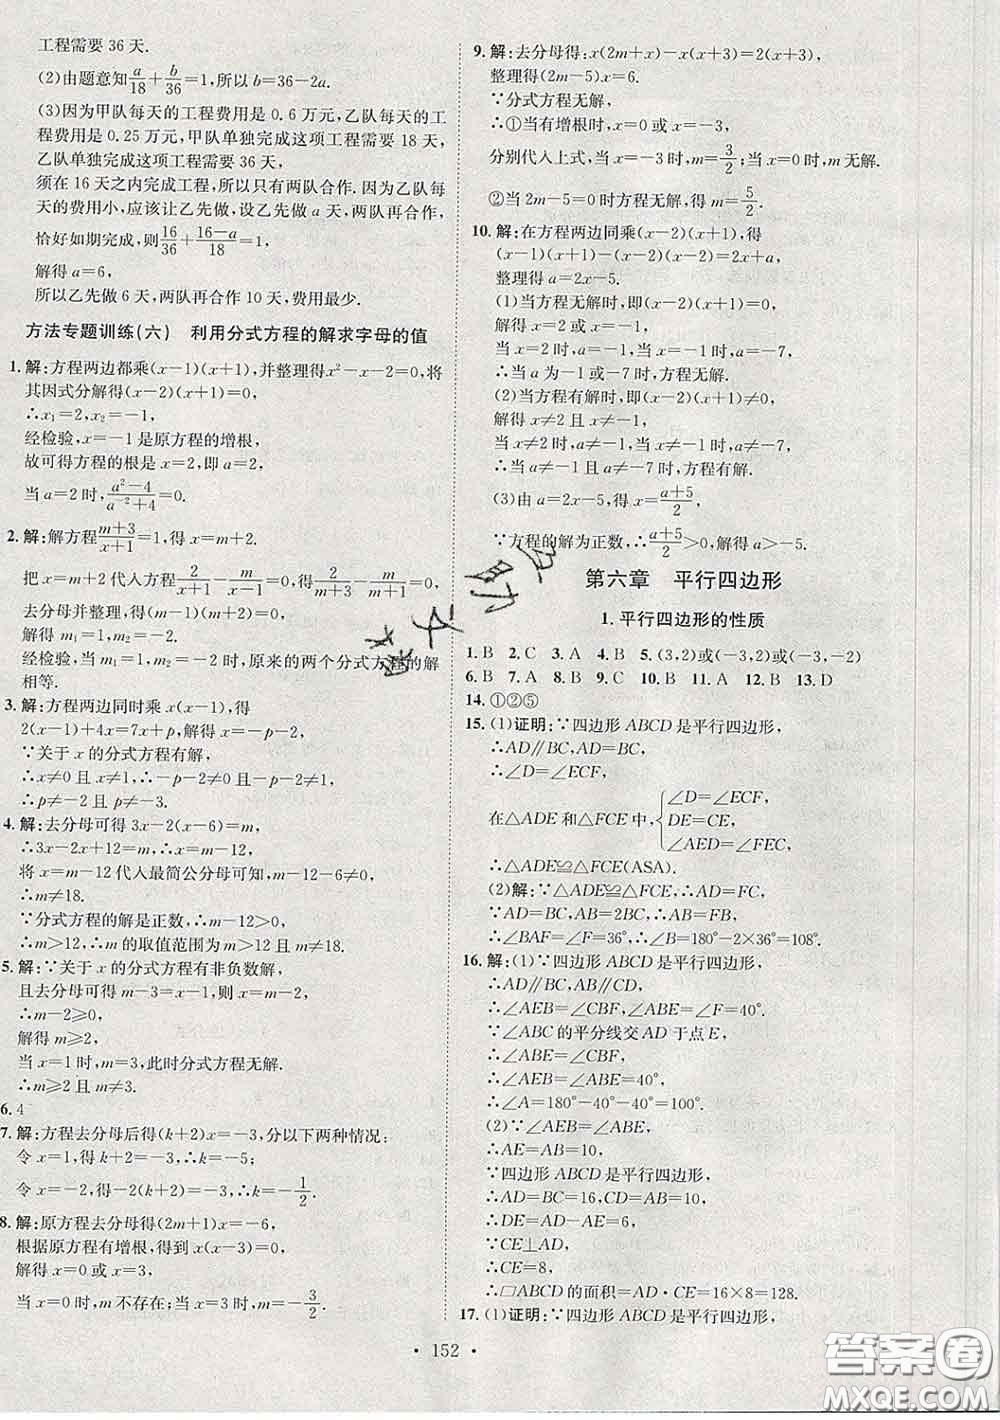 工程需要 36 天.
(2)由题意知a/18+b/36=1,所以 b=36-2a.
(3)因为甲队每天的工程费用是 0.6 万元,乙队每天的工
程费用是 0.25 万元,甲队单独完成这项工程需要 18 天,
乙队单独完成这项工程需要 36 天,
须在 16 天之内完成工程,所以只有两队合作. 因为乙队每
天的费用小,应该让乙先做,设乙先做 a 天,两队再合作,
恰好如期完成,则16/36+(16-a)/18=1,
解得 a=6,
所以乙先做 6 天,两队再合作 10 天,费用最少.
方法专题训练(六) 利用分式方程的解求字母的值
1. 解:方程两边都乘(x-1)(x+1),并整理得x²-x-2=0,将
其因式分解得(x-2)(x+1)=0,
∴x₁=2,x₂=-1,
经检验,x=-1 是原方程的增根,
故可得方程的根是 x=2,即 a=2,
当 a=2 时,(a²-4)/(a⁻²+4)=0.
2. 解:解方程(m+3)/(x+1)=1,得 x=m+2.
把 x=m+2 代入方程2/(x+1)-m/x=0,得2/(m+3)-m/(m+2)=0,
去分母并整理,得 m²+m-4-2=0,
解得 m₁=1,m₂=-2.
经检验,当 m₁=1,m₂=-2 时,原来的两个分式方程的解
相等.
3. 解:方程两边同时乘 x(x-1),得
2(x-1)+4x=7x+p,解得 x=-p-2,
∵关于 x 的分式方程有解,
∴x≠0 且 x≠1,∴-p-2≠0 且-p-2≠1,
∴p≠-2 且 p≠-3.
4. 解:去分母可得 3x-2(x-6)=m,
∴3x-2x+12=m,∴x=m-12,
将 x=m-12 代入最简公分母可知,m-12-6≠0,
∴m≠18.
∵分式方程的解是正数,∴m-12>0,
∴m>12,∴m 的取值范围为 m>12 且 m≠18.
5. 解:∵关于 x 的分式方程有非负数解,
且去分母可得 m-3=x-1,则 x=m-2,
∴m-2≥0,
解得 m≥2,
当 x=1 时,m=3,此时分式方程无解.
∴m≥2 且 m≠3.
6. 4
7. 解:方程去分母后得(k+2)x=-3,分以下两种情况:
令 x=1,得 k+2=-3,∴k=-5;
令 x=-2,得-2(k+2)=-3,∴k=-1/2.
8. 解:原方程去分母得(2m+1)x=-6,
根据原方程有增根,得到 x(x-3)=0,
解得 x=0 或 x=3,
当 x=0 时,m 不存在;当 x=3 时,m=-3/2.
9. 解:去分母得:x(2m+x)-x(x+3)=2(x+3),
整理得(2m-5)x=6.
∵分式方程无解,
∴①当有增根时,x=0 或 x=-3,
分别代入上式,当 x=-3 时,m=3/2;当 x=0 时,m 无解.
②当 2m-5=0 时方程无解,得 m=5/2.
10. 解:在方程两边同乘(x-2)(x+1),得
(x-1)(x+1)-(x-2)(x-2)=2x+a,
整理得 a=2x-5.
(1)当方程无解时,即(x-2)(x+1)=0,
解得 x=2 或 x=-1,
当 x=2 时,a=-1,当 x=-1 时,a=-7,
∴当 a 为-1 或-7 时,方程无解.
(2)当方程有解时,即(x-2)(x+1)≠0,
解得 x≠2 且 x≠-1,
当 x≠2 时,a≠-1,当 x≠-1 时,a≠-7,
∴当 a≠-1 且 a≠-7 时,方程有解.
(3)由 a=2x-5,得 x=(a+5)/2.
∵方程的解为正数,∴(a+5)/2>0,解得 a>-5.
第六章 平行四边形
1. 平行四边形的性质
1. B 2. C 3. A 4. B 5. (3,2)或(-3,2)或(-3,-2)
6. B 7. A 8. B 9. C 10. B 11. A 12. B 13. D
14. ①②⑤
15. (1)证明:∵四边形 ABCD 是平行四边形,
∴AD∥BC,AD=BC,
∴∠D=∠ECF,
在△ADE 和△FCE 中,{∠D=∠ECF, DE=CE, ∠AED=∠FEC,
∴△ADE≌△FCE(ASA).
(2)解:∵△ADE≌△FCE,∴AD=FC,
∵AD=BC,AB=2BC,∴AB=FB,
∴∠BAF=∠F=36°,∴∠B=180°-2×36°=108°.
16. 解:(1)∵四边形 ABCD 是平行四边形,
∴AD∥BC,AB∥CD,
∴∠AEB=∠CBF,∠ABE=∠F=40°.
∵∠ABC 的平分线交 AD 于点 E,
∴∠ABE=∠CBF,
∴∠AEB=∠ABE=40°,
∴∠A=180°-40°-40°=100°.
(2)∵∠AEB=∠ABE,
∴AE=AB=10,
∵四边形 ABCD 是平行四边形,
∴AD=BC=16,CD=AB=10,
∴DE=AD-AE=6,
∵CE⊥AD,
∴CE=8,
∴□ABCD 的面积=AD·CE=16×8=128.
17. (1)证明:∵四边形 ABCD 是平行四边形,
• 152 •
答案圈
MXQE.COM